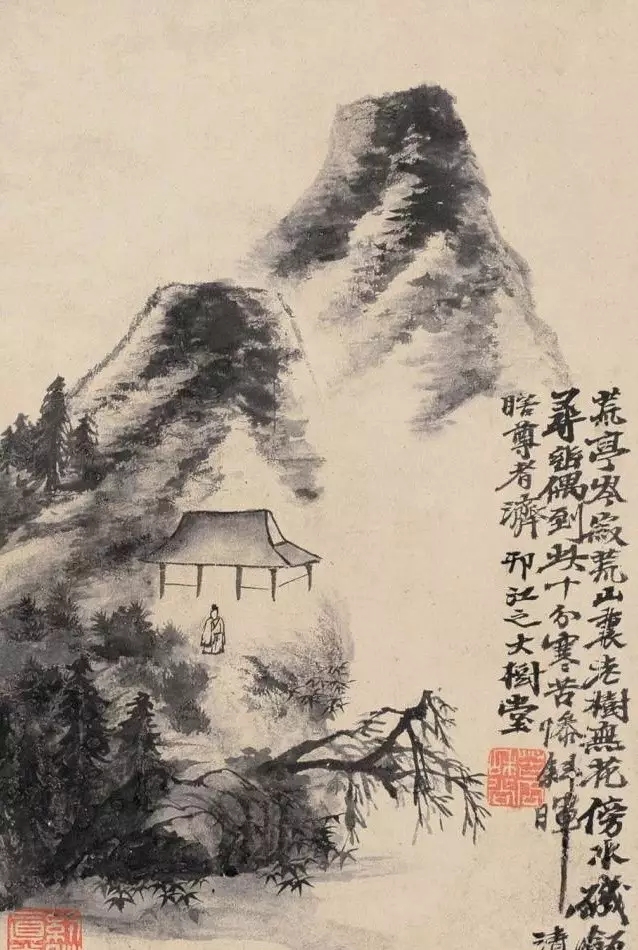 荒亭岑寂荒山裏老樹無花傍水磯
尋詩偶到此十分寒苦斜暉 清
瞎尊者濟 邗江之大樹堂